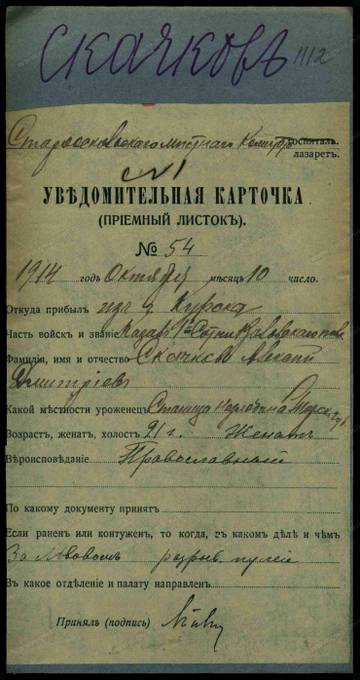 СКАЧКОВЪ 1112
Старооскольскаго мѣстнаго Комитета госпиталь.
лазаретъ.
№ 1
УВѢДОМИТЕЛЬНАЯ КАРТОЧКА
(ПРІЕМНЫЙ ЛИСТОКЪ).
№ 54
1914 годъ Октября мѣсяцъ 10 число.
Откуда прибылъ Курска
Часть войскъ и званіе Казакъ 1й Сотни
Фамилія, имя и отчество Скачковъ
Дмитріевъ
Какой мѣстности уроженецъ Станица
Возрастъ, женатъ, холостъ 21 г. Женатъ
Вѣроисповѣданіе Православный
По какому документу принятъ
Если раненъ или контуженъ, то когда, въ какомъ дѣлѣ и чѣмъ
За Львовомъ разрыв. пулей
Въ какое отдѣленіе и палату направленъ
Принялъ (подпись)